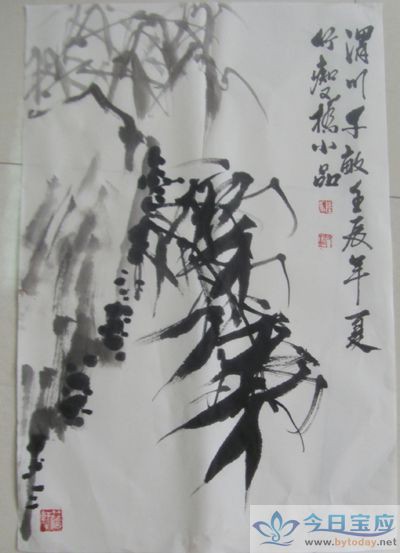 渭川千畝壬辰年夏
竹癡小品
今日宝应
www.bytoday.net